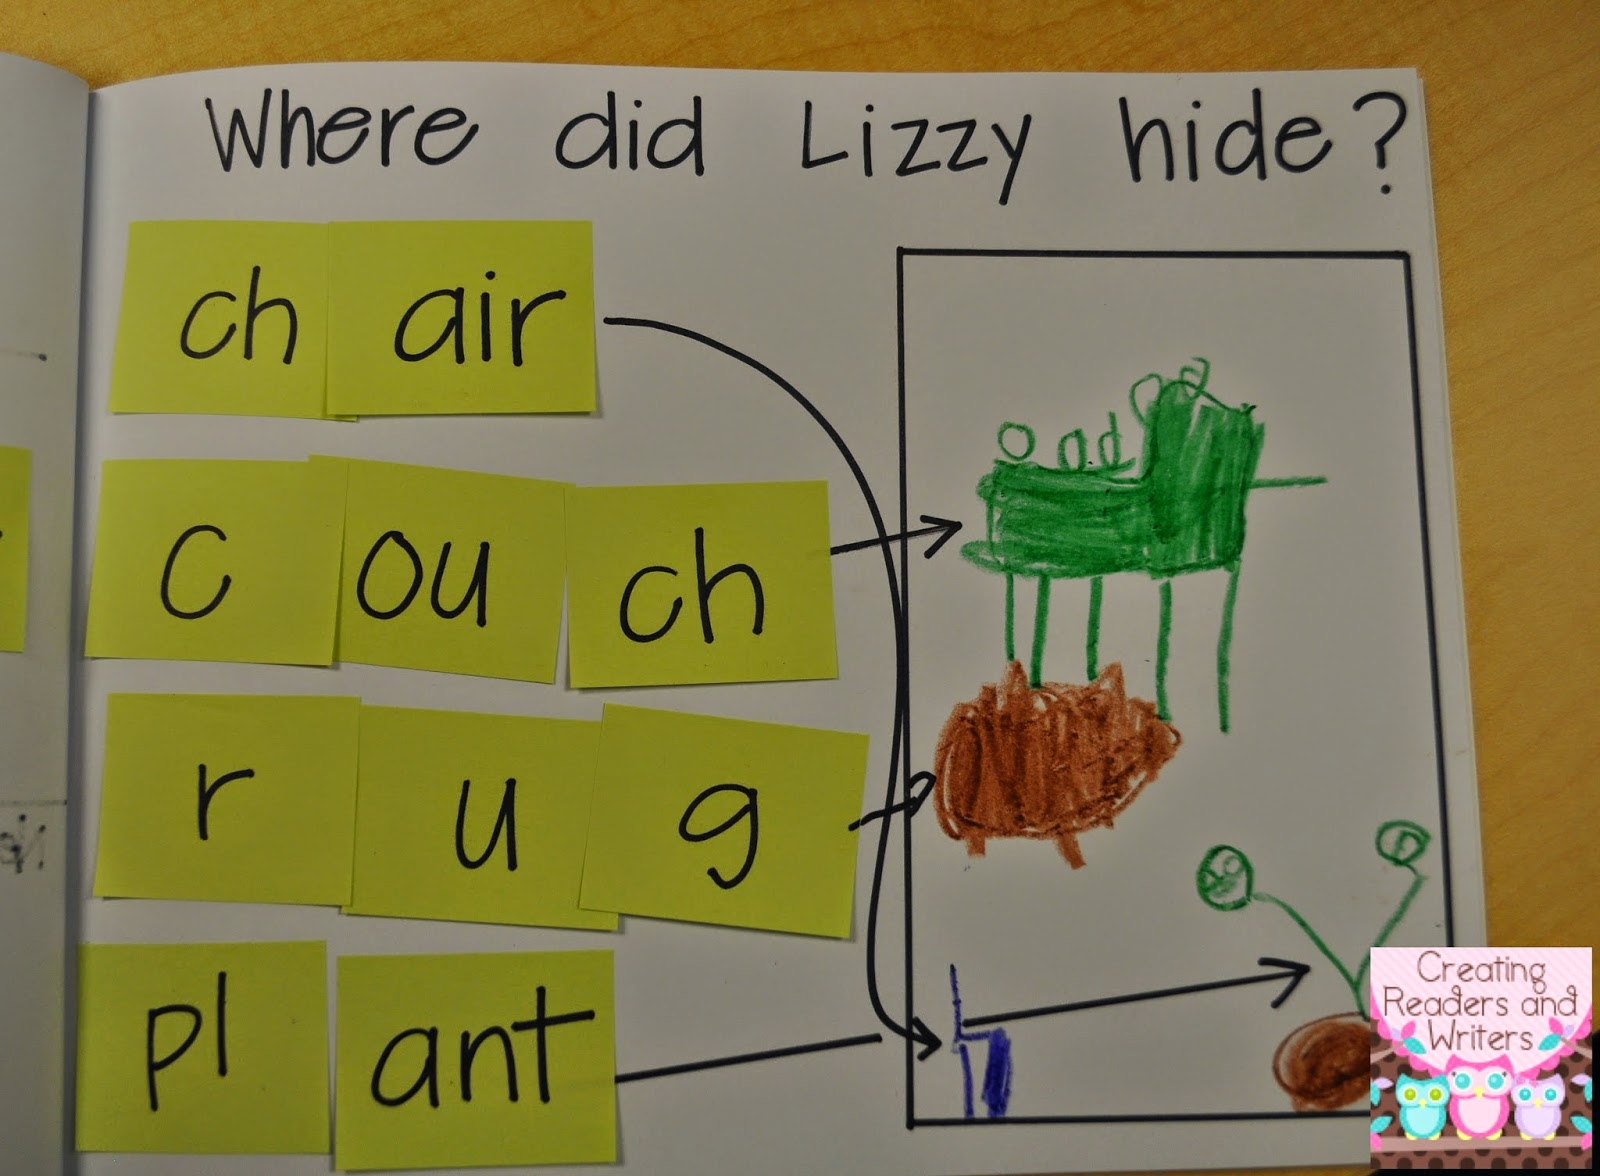 Where did Lizzy hide?
ch air
c ou ch
r u g
pl ant
Creating
Readers and
Writers